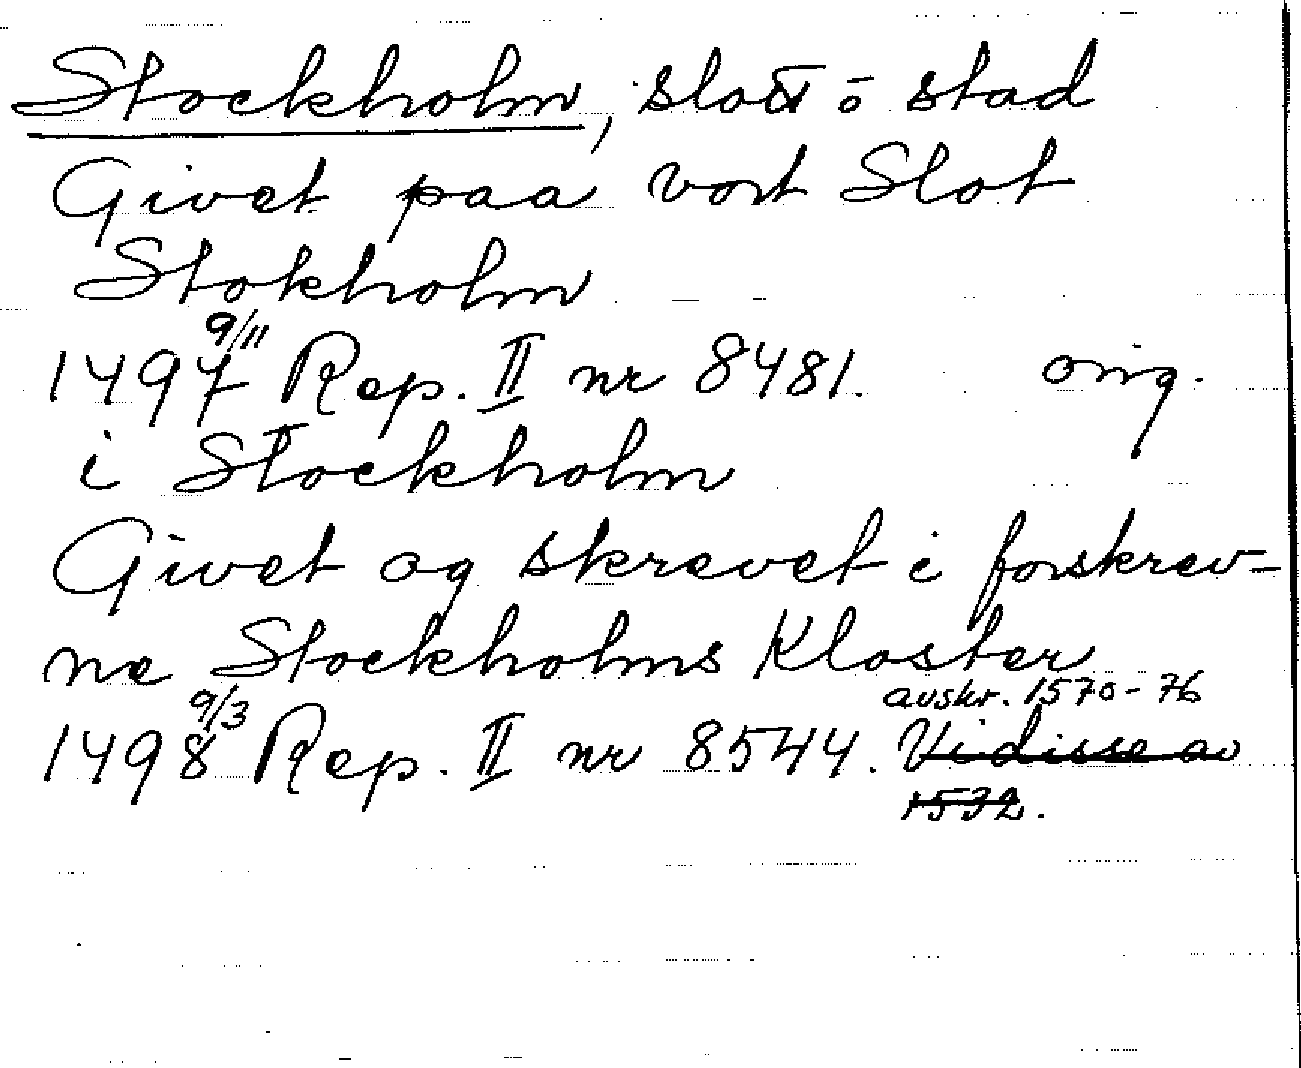 Stockholm, slott o stad
Givet paa vort Slot
Stokholm
1497 9/11 Rep. II nr 8481. orig.
i Stockholm
Givet og skrevet i forskrev-
ne Stockholms Kloster
avskr. 1570-76
1498 9/3 Rep. II nr 8544. Vidisse av
1532.